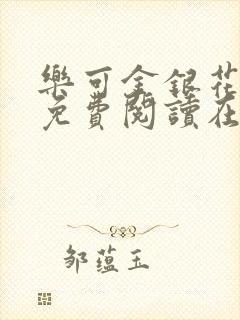 樂可金銀花
免費閱讀在
邹蕴玉